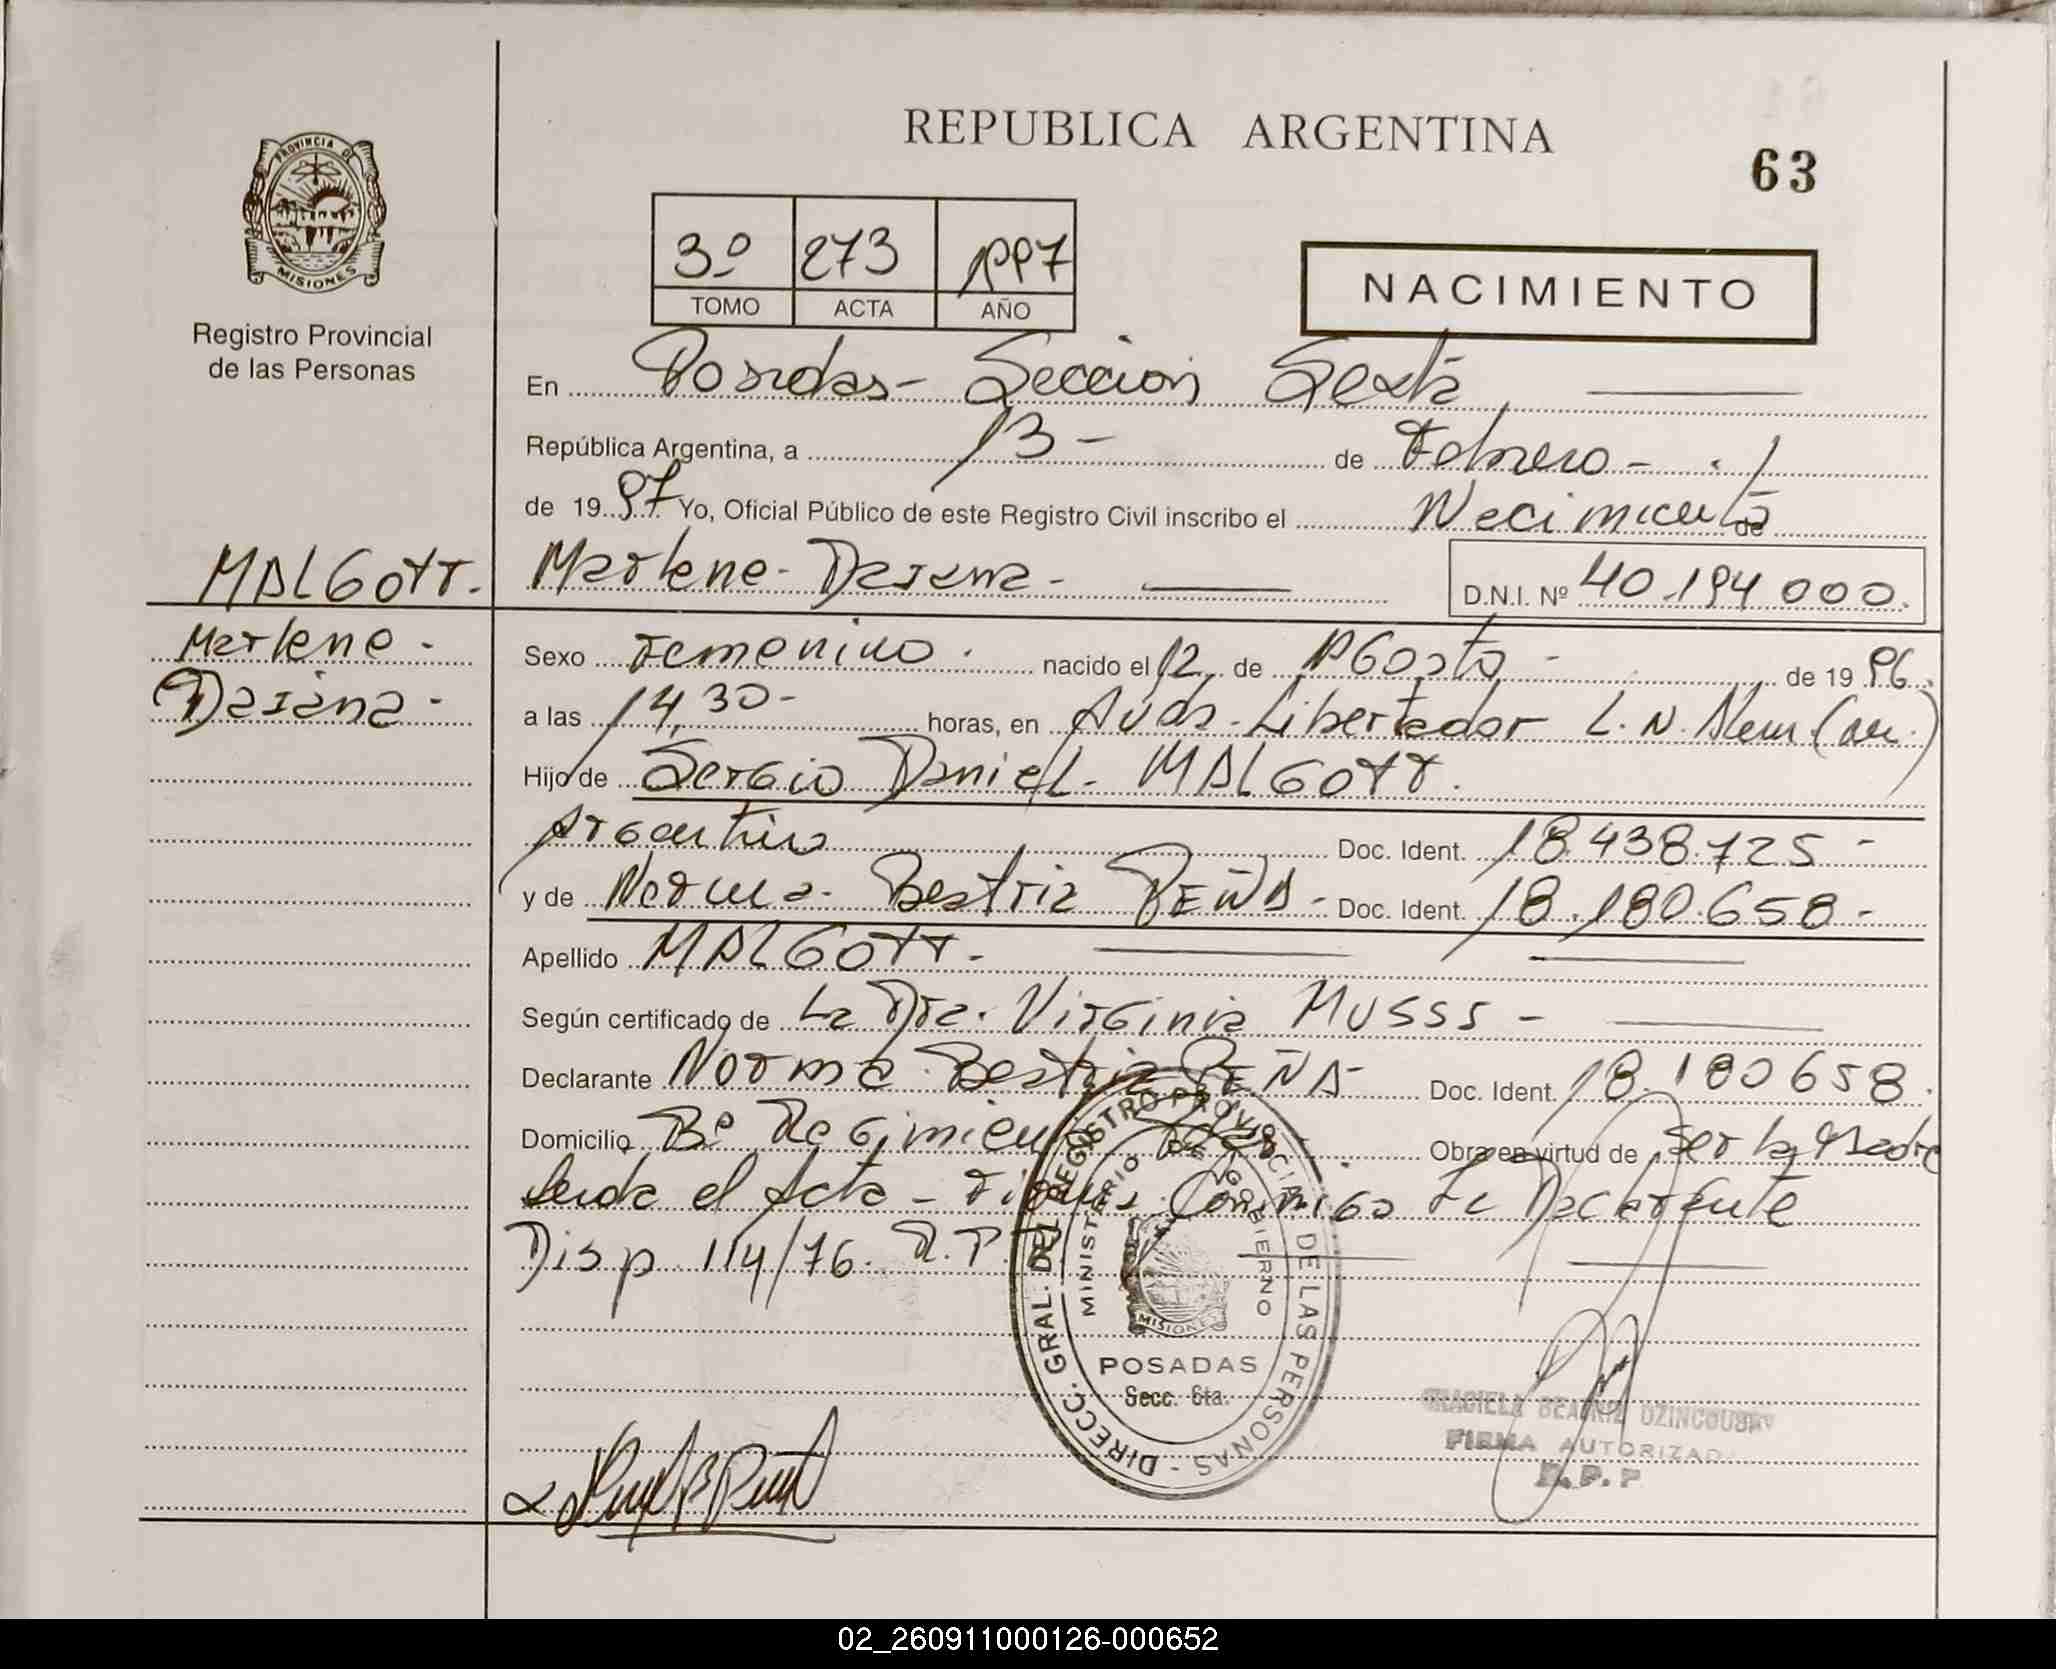 REPUBLICA ARGENTINA
63
PROVINCIA DE
MISIONES
Registro Provincial
de las Personas
3º 273 1997
TOMO ACTA AÑO
NACIMIENTO
En Posadas - Sección Sexta
República Argentina, a 13 - de Febrero -
de 1997 Yo, Oficial Público de este Registro Civil inscribo el Nacimiento de
MALGOTT. Marlene - Daiana - D.N.I. Nº 40.194000.
Marlene - Sexo Femenino. nacido el 12 de Agosto - de 1996.
Daiana - a las 14,30 - horas, en Avda. Libertador L.N. Alem
Hijo de Sergio Daniel - MALGOTT.
Argentino Doc. Ident. 18.438.725 -
y de Norma - Beatriz PEÑA - Doc. Ident. 18.180.658 -
Apellido MALGOTT -
Según certificado de La Dra. Virginia
Declarante Norma Beatriz PEÑA - Doc. Ident. 18.180658.
Domicilio Bº Regimiento Obra en virtud de Ser la Madre
Leida el Acta - Firma Conmigo La Declarante
Disp. 114/76. R.P.
DIRECC. GRAL. DEL REGISTRO PROVINCIAL DE LAS PERSONAS -
MINISTERIO DE GOBIERNO
MISIONES
POSADAS
Secc. 6ta.
GRACIELA BEATRIZ
FIRMA AUTORIZADA
R.P.P
02_260911000126-000652